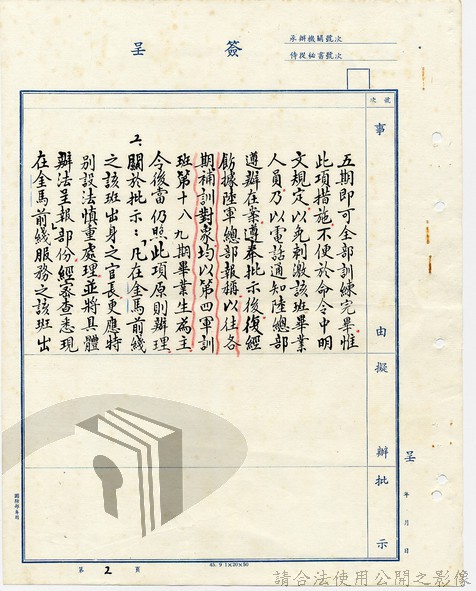 簽呈
承辦機關號次
侍從祕書號次
號次
事由
擬辦
批示
五期即可全部訓練完畢惟
此項措施不便於命令中明
文規定以免刺激該班畢業
人員乃以電話通知陸總部
遵辦在案遵奉批示後復經
飭據陸軍總部報稱以往各
期補訓對象均以第四軍訓
班第十八九期畢業生為主
今後當仍照此項原則辦理
2.關於批示：「凡在金馬前綫
之該班出身之官長更應特
別設法慎重處理並將具體
辦法呈報」部份經彙查悉現
在金馬前綫服務之該班出
呈
年月日
第2頁
請合法使用公開之影像